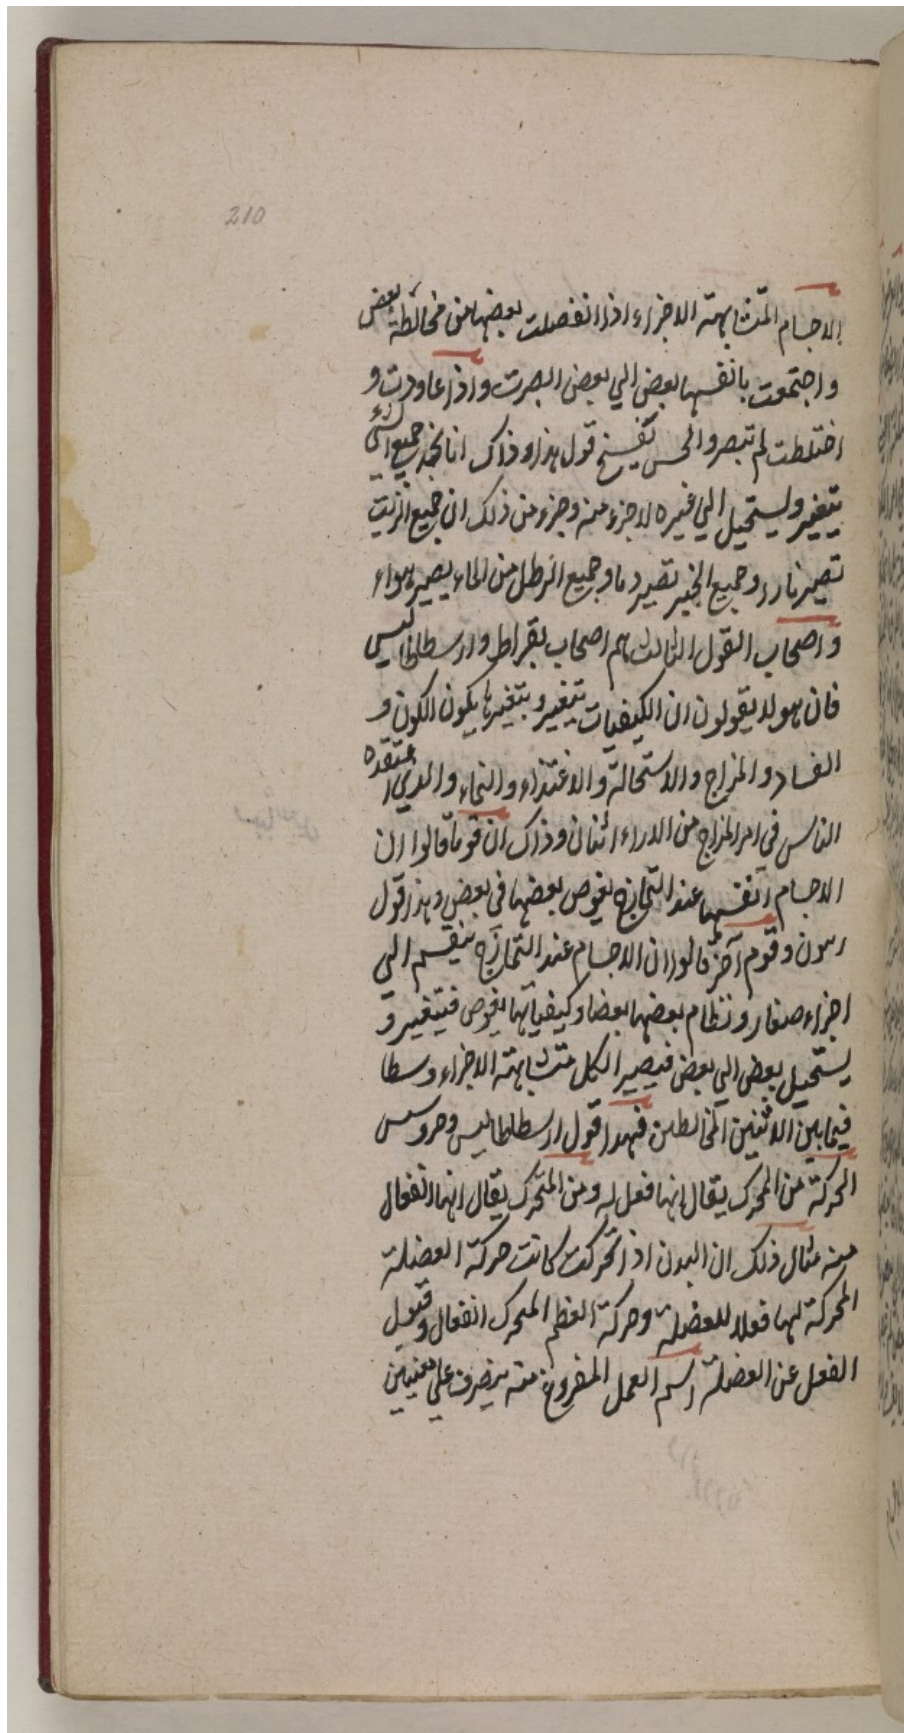 210
الاجسام المتشابهته الاجزاء اذا انفصلت بعضها من مخالطة بعض
واجتمعت بانفسها بعض الي بعض ابصرت واذا عاودت و
اختلطت لم تبصر والحس يفسخ قول هذا وذاك انا نجد جميع الشئ
يتغير ويستحيل الي غيره لا جزء منه وجزء من ذلك ان جميع الزيت
تصير نارا وجميع الخبز تصير دما وجميع الرطل من الماء يصير هواء
واصحاب القول الثالث هم اصحاب بقراط وارسطاطاليس
فان هولا يقولون ان الكيفيات تتغير وبتغيرها يكون الكون و
الفساد والمزاج والاستحالة والاغتذاء والنماء والذي اعتقده
الناس في امر المزاج من الاراء اثنان وذاك ان قوما قالوا ان
الاجسام انفسها عند التمازج يغوص بعضها في بعض وهذا قول
رسون وقوم آخر قالوا ان الاجسام عند التمازج ينقسم الي
اجزاء صغار ونظام بعضها بعضا وكيفياتها يغوص فيتغير و
يستحيل بعض الي بعض فيصير الكل متشابهته الاجزاء وسطا
فيما بين الاثنين المخالطين فهذا قول ارسطاطاليس وحروسس
الحركة من المحرك يقال انها فعل له ومن المتحرك يقال انها انفعال
منه مثال ذلك ان البدن اذا تحركت كانت حركة العضلة
المحركة لها فعلا للعضلة وحركة العظم المتحرك انفعال وقبول
الفعل عن العضلة اسم العمل المفروغ منه يتصرف علي معنيين